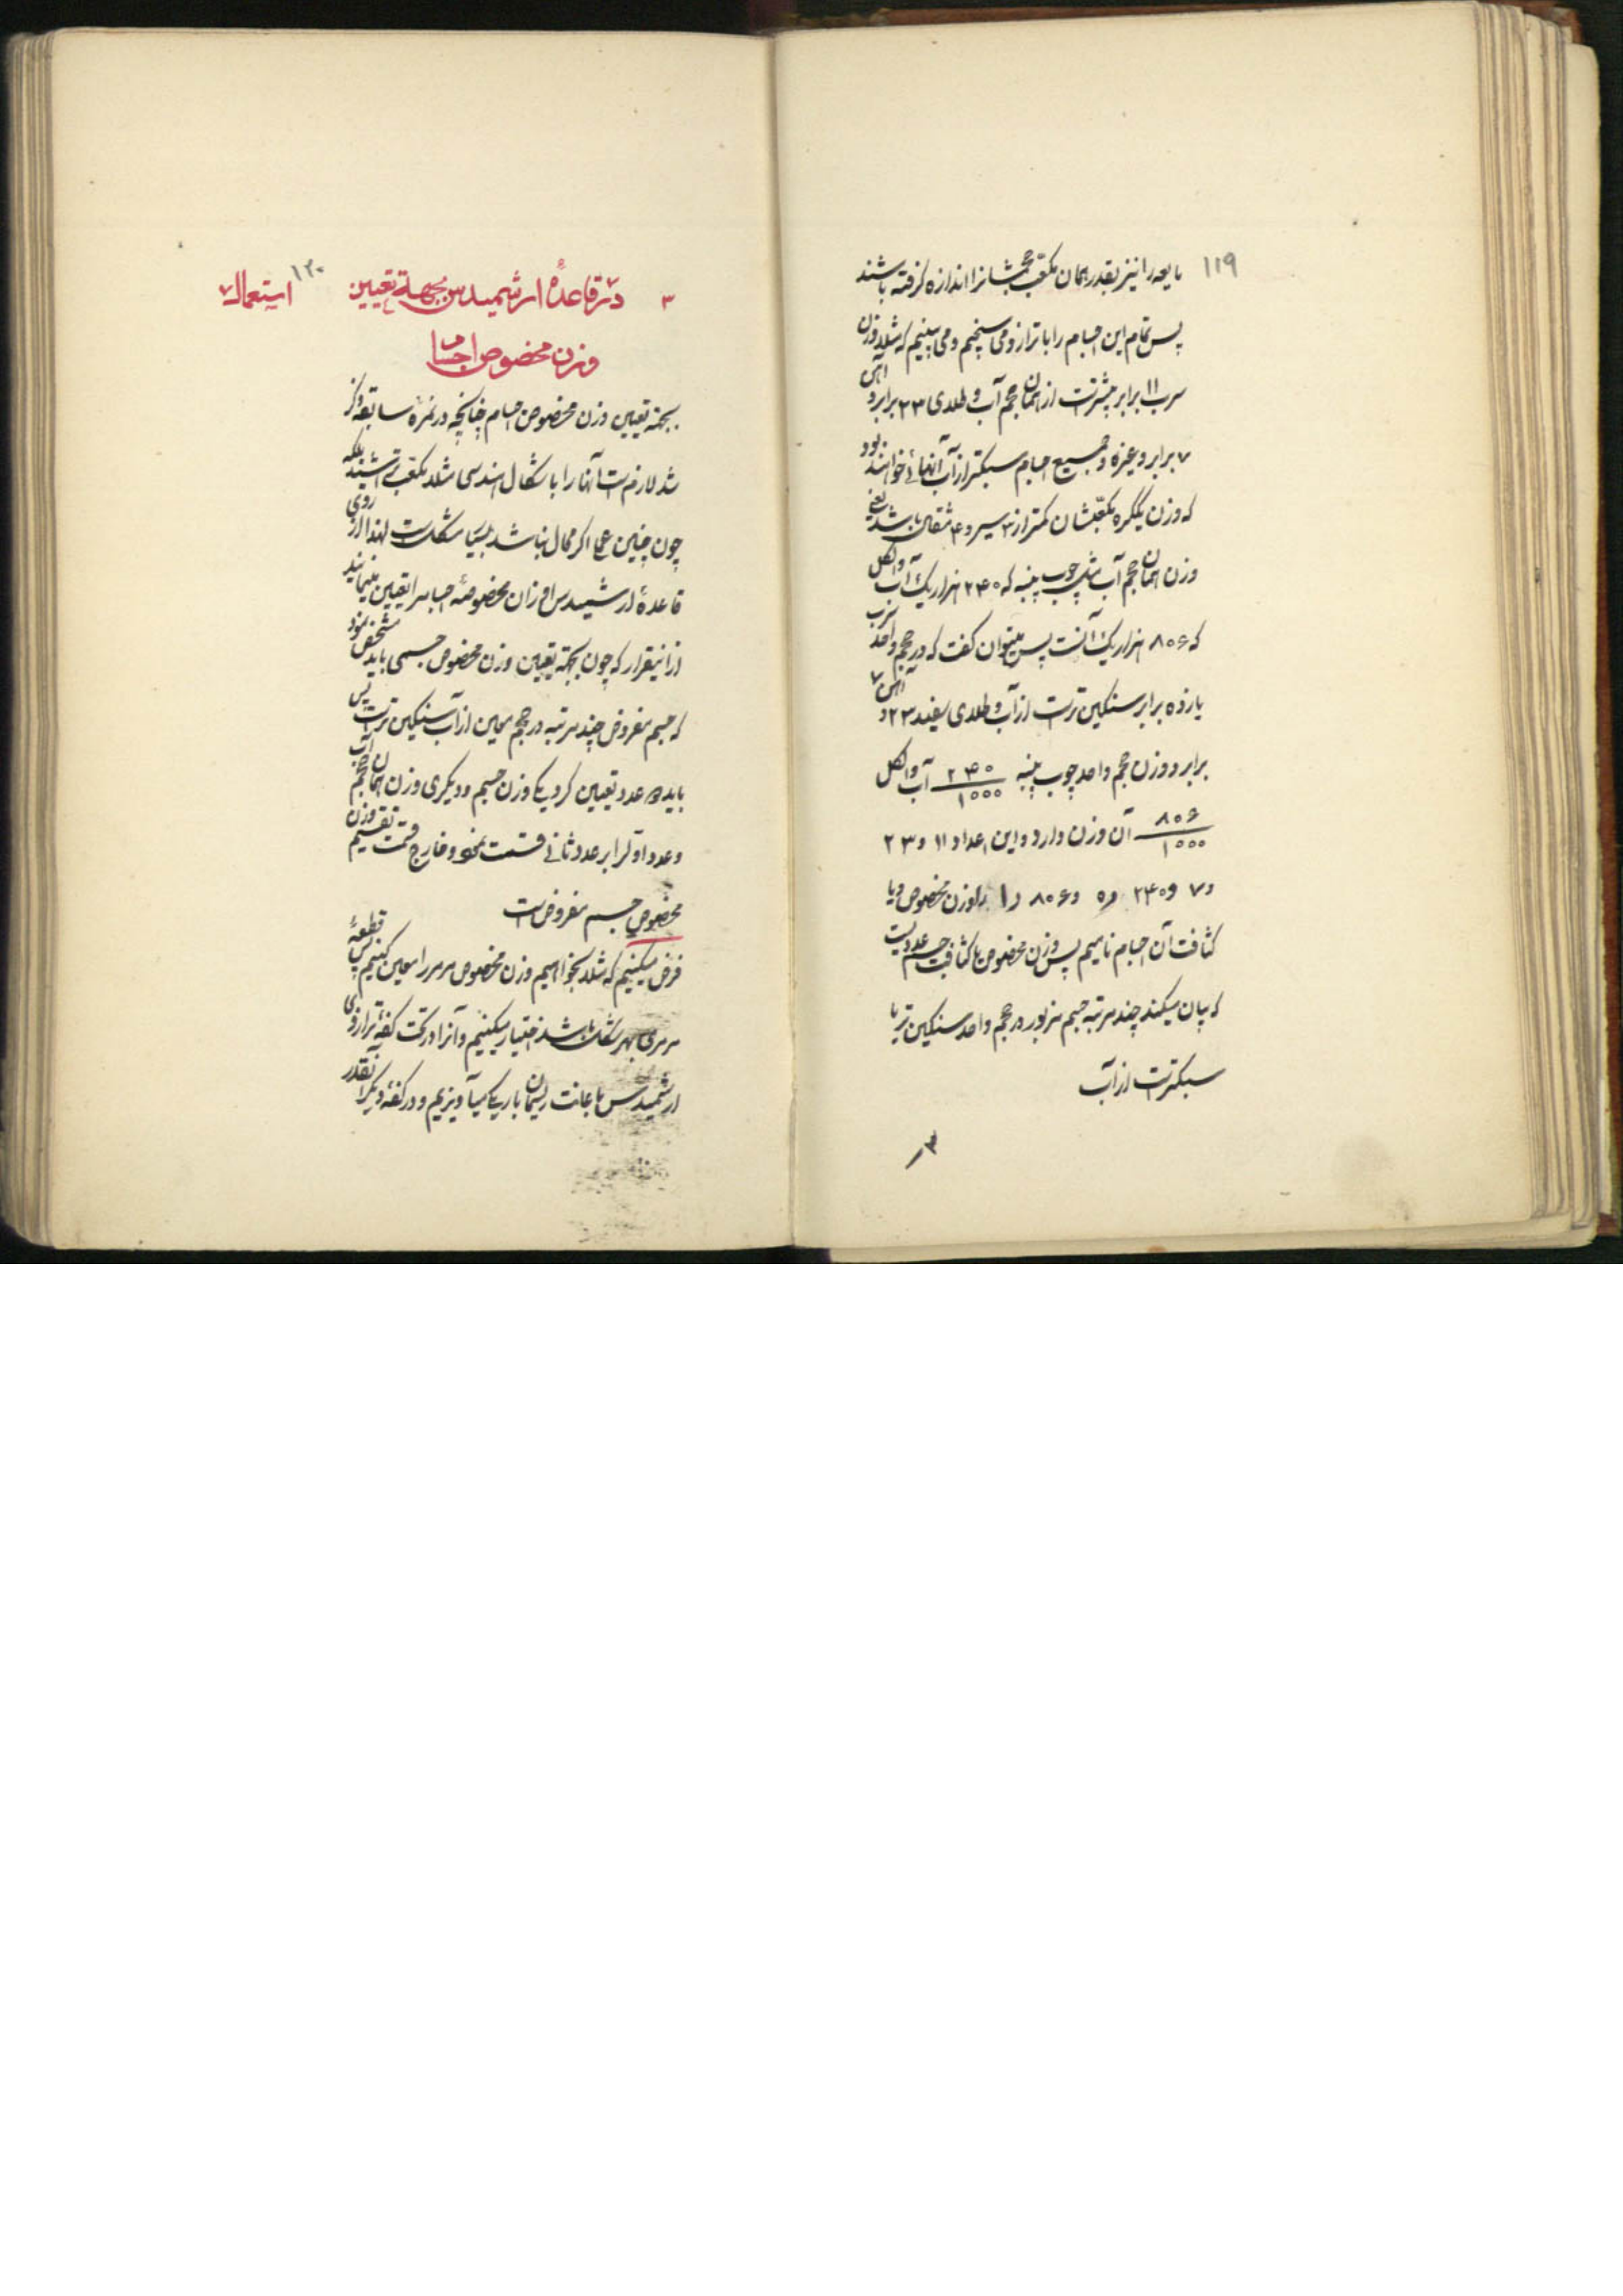 ۱۱۹
مایعه را نیز بقدر همان مکعب حجمشانرا اندازه گرفته باشند
پس تمام این اجسام را با ترازو می سنجیم و می بینیم که مثلا وزن
سرب ۱۱ برابر بیشتر است از همان حجم آب و طلای ۲۳ برابر و آهن
۷ برابر و غیره و جمیع اجسام سبکتر از آب آنهائی خواهند بود
که وزن یکگره مکعبشان کمتر از ۳ سیر و ۴ مثقال باشد یعنی
وزن همان حجم آب مثل چوب پنبه که ۲۴۰ هزار یک آب و الکل
که ۸۰۶ هزار یک آنست پس میتوان گفت که در حجم واحد سرب
یازده برابر سنگین تر است از آب و طلای سفید ۲۳ و آهن ۷
برابر و وزن حجم واحد چوب پنبه ۲۴۰/۱۰۰۰ آب و الکل
۸۰۶/۱۰۰۰ آن وزن دارد و این اعداد ۱۱ و ۲۳
و ۷ و ۲۴۰ ره و ۸۰۶ ر۱ را وزن مخصوص و یا
کثافت آن اجسام نامیم پس وزن مخصوص یا کثافت جسم عددیست
که بیان میکند چند مرتبه جسم مزبور در حجم واحد سنگین تر یا
سبکتر است از آب
۳
۱۲۰
۳ در قاعدهٔ ارشمیدس بجهة تعیین استعمال
وزن مخصوص اجسام
بجهة تعیین وزن مخصوص اجسام چنانچه در نمرهٔ سابقه ذکر
شد لازم است آنها را باشکال هندسی مثلا مکعب تراشید بلکه
چون چنین عمل اگر محال نباشد بسیار مشکلست لهذا از روی
قاعدهٔ ارشمیدس اوزان مخصوصهٔ اجسام را تعیین مینمایند
ازاینقرار که چون بجهة تعیین وزن مخصوص جسمی باید مشخص نمود
که جسم مفروض چند مرتبه در حجم معین از آب سنگین تر است پس
باید دو عدد تعیین کرد یکی وزن جسم و دیگری وزن همان حجم آب
و عدد اول را بر عدد ثانی قسمت نمود و خارج قسمت تقسیم وزن
مخصوص جسم مفروض است
فرض میکنیم که مثلا بخواهیم وزن مخصوص مرمر را معین کنیم پس قطعهٔ
مرمری بهر شکل باشد اختیار میکنیم و آنرا در تحت کفهٔ ترازوی
ارشمیدس باعانت ریسمان باریکی میآویزیم و در کفهٔ دیگر آنقدر